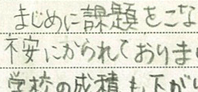 まじめに課題をこな
不安にかられておりまし
学校の成績も下がり